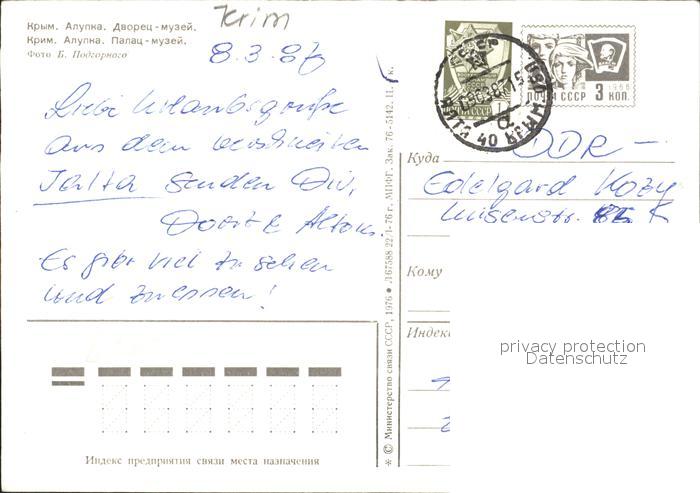 Krim
Крым. Алупка. Дворец-музей.
Крим. Алупка. Палац-музей.
Фото Б. Подгорного
8.3.86
Liebe Urlaubsgrüße
aus dem verschneiten
Jalta senden Dir,
Es gibt viel zu sehen
und zu essen!
ПОЧТА СССР 3 КОП.
1966
Куда DDR –
Edelgard
Luisenstr.
Кому
Индекс
privacy protection
Datenschutz
Индекс предприятия связи места назначения
* © Министерство связи СССР, 1976 • Л 67588 22/I-76 г. МПФГ. Зак. 76-5142. Ц. к.